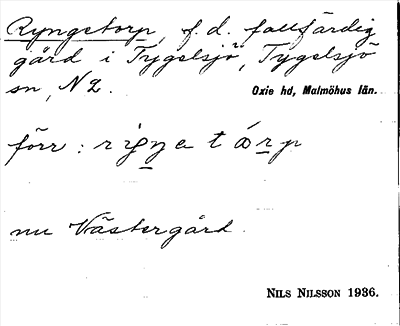 Ryngstorp, f.d. fallfärdig
gård i Tygelsjö, Tygelsjö
sn, N 2.
Oxie hd, Malmöhus län.
förr: 
nu Västergård.
NILS NILSSON 1936.